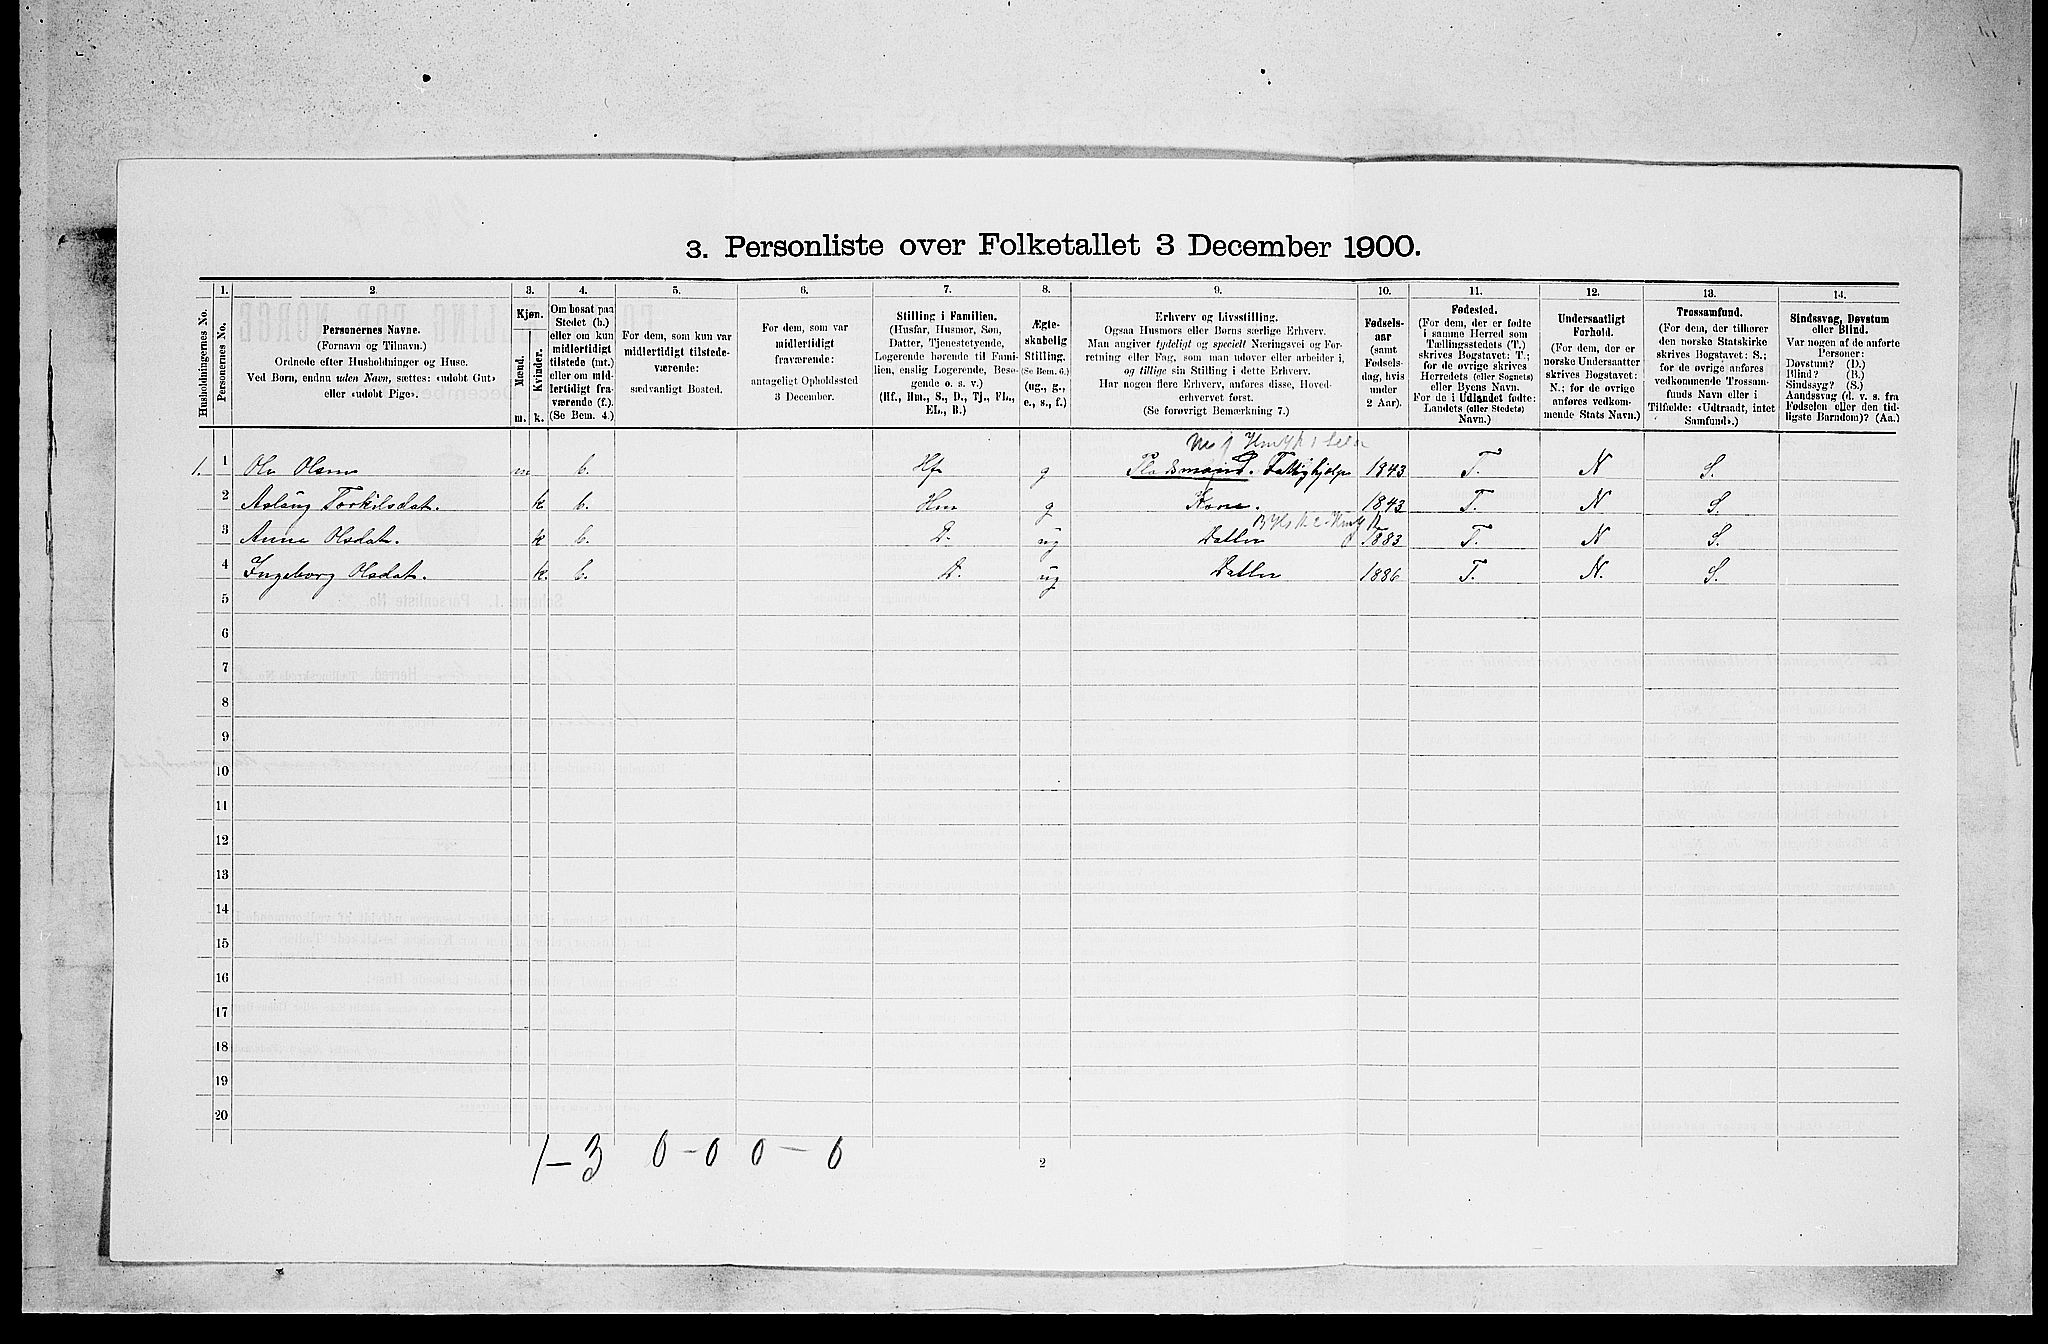 3. Personliste over Folketallet 3 December 1900.
Husholdningernes No.
1.
Personernes No.
2.
Personernes Navne.
(Fornavn og Tilnavn.)
Ordnede efter Husholdninger og Huse.
Ved Børn, endnu uden Navn, sættes: «udøbt Gut»
eller «udøbt Pige».
3.
Kjøn.
Mænd.
Kvinder.
m. k.
4.
Om bosat paa
Stedet (b.)
eller om kun
midlertidigt
tilstede (mt.)
eller om mid-
lertidigt fra-
værende (f.).
(Se Bem. 4.)
5.
For dem, som kun var
midlertidigt tilstede-
værende:
sædvanligt Bosted.
6.
For dem, som var
midlertidigt
fraværende:
antageligt Opholdssted
3 December.
7.
Stilling i Familien.
(Husfar, Husmor, Søn,
Datter, Tjenestetyende,
Logerende hørende til Fami-
lien, enslig Logerende, Besø-
gende o. s. v.)
(Hf., Hm., S., D., Tj., FL.,
EL., B.)
8.
Ægte-
skabelig
Stilling.
(Se Bem. 6.)
(ug., g.,
e., s., f.)
9.
Erhverv og Livsstilling.
Ogsaa Husmors eller Børns særlige Erhverv.
Man angiver tydeligt og specielt Næringsvei og For-
retning eller Fag, som man udøver eller arbeider i,
og tillige sin Stilling i dette Erhverv.
Har nogen flere Erhverv, anføres disse, Hoved-
erhvervet først.
(Se forøvrigt Bemærkning 7.)
10.
Fødsels-
aar
(samt
Fødsels-
dag, hvis
under
2 Aar).
11.
Fødested.
(For dem, der er fødte
i samme Herred som
Tællingsstedets (T.)
skrives Bogstavet: T.;
for de øvrige skrives
Herredets (eller Sognets)
eller Byens Navn.
For de i Udlandet fødte:
Landets (eller Stedets)
Navn.)
12.
Undersaatligt
Forhold.
(For dem, der er
norske Undersaatter
skrives Bogstavet:
N.; for de øvrige
anføres vedkom-
mende Stats Navn.)
13.
Trossamfund.
(For dem, der tilhører
den norske Statskirke
skrives Bogstavet: S.;
for de øvrige anføres
vedkommende Trossam-
funds Navn eller i
Tilfælde: «Udtraadt, intet
Samfund».)
14.
Sindssvag, Døvstum
eller Blind.
Var nogen af de anførte
Personer:
Døvstum? (D.)
Blind? (B.)
Sindssyg? (S.)
Aandssvag (d. v. s. fra
Fødselen eller den tid-
ligste Barndom)? (Aa.)
1. 1 Ole Olsen m b. Hf g Pladsmand. Fattighjelp 1843 T. N S.
2 Aslaug Torkilsdat. k b. Hm g Kone. 1843 T. N S.
3 Anne Olsdat. k b. D. ug Datter 1883 T. N S.
4 Ingeborg Olsdat. k. b. D. ug Datter 1886 T. N. S.
5
6
7
8
9
10
11
12
13
14
15
16
17
18
19
20
1-3 0-0 0-0
2